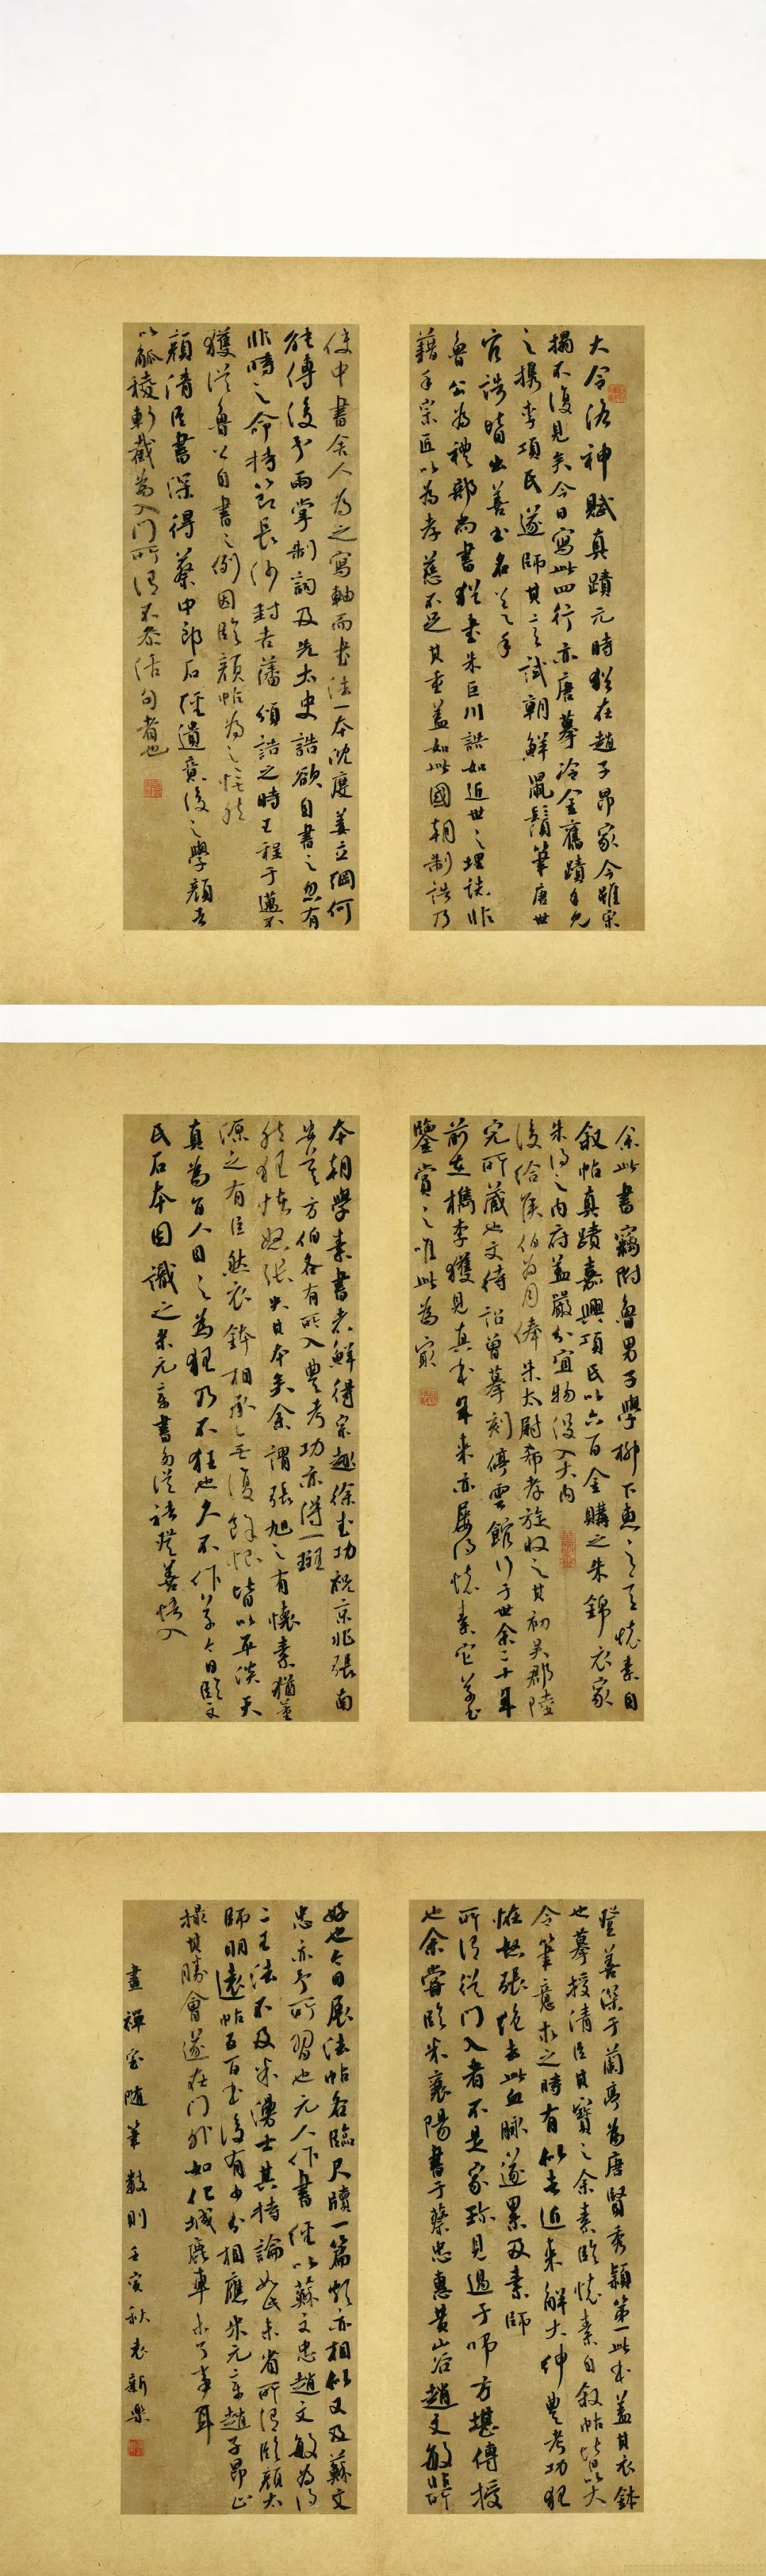 大令洛神賦真蹟元時猶在趙子昂家今雖宋
搨不復見矣今日寫此四行亦唐摹冷金舊蹟自
之携李項氏遂師其意試朝鮮鼠鬚筆唐世
官誥皆出善書名公手
魯公為禮部尚書猶書朱巨川誥如近世之埋誌非
藉手宗匠以為孝慈不足其重蓋如此國朝制誥乃
使中書舍人為之寫軸而書法一本沈度姜立綱何
能傳後予兩掌制詞及先太史誥欲自書之忽有
非時之命持節長沙封吉藩頒誥之時王程于邁不
獲從魯公自書之例因臨顏帖為之怃然
顏清臣書深得蔡中郎石經遺意後之學顏者
以觚稜斬截為入門所謂不參活句者也
余此書竊附魯男子學柳下惠之意懷素自
敘帖真蹟嘉興項氏以六百金購之朱錦衣家
朱得之內府蓋嚴分宜物沒入大內
後給侯伯為月俸朱太尉希孝旋收之其初吳郡陸
完所藏也文待詔曾摹刻停雲館行于世余二十年
前在檇李獲見真本年來亦屢得懷素它草書
鑒賞之唯此為最
本朝學素書者鮮得宗趣徐武功祝京兆張南
安莫方伯各有所入豐考功亦得一班
然狂怪怒張失其本矣余謂張旭之有懷素猶董
源之有巨然衣鉢相承無復餘恨皆以平淡天
真為旨人目之為狂乃不狂也久不作草今日臨文
氏石本因識之米元章書多從褚登善悟入
登善深于蘭亭為唐賢秀穎第一此本蓋其衣鉢
也摹授清臣其寶之余素臨懷素自敘帖皆以大
令筆意求之時有似者近來解大紳豐考功狂
怪怒張絕去此血脈遂累及素師
所謂從門入者不是家珍見過于師方堪傳授
也余嘗臨米襄陽書于蔡忠惠黃山谷趙文敏非所
好也今日展法帖各臨尺牘一篇頗亦相似又及蘇文
忠亦予所習也元人作書經以蘇文忠趙文敏為得
二王法不及米漫士其持論如此未省所謂臨顏太
師明遠帖五百本後有少分相應米元章趙子昂止
撮其勝會遂在門外如化城鹿車未了事耳
畫禪室隨筆數則壬寅秋袁新樂